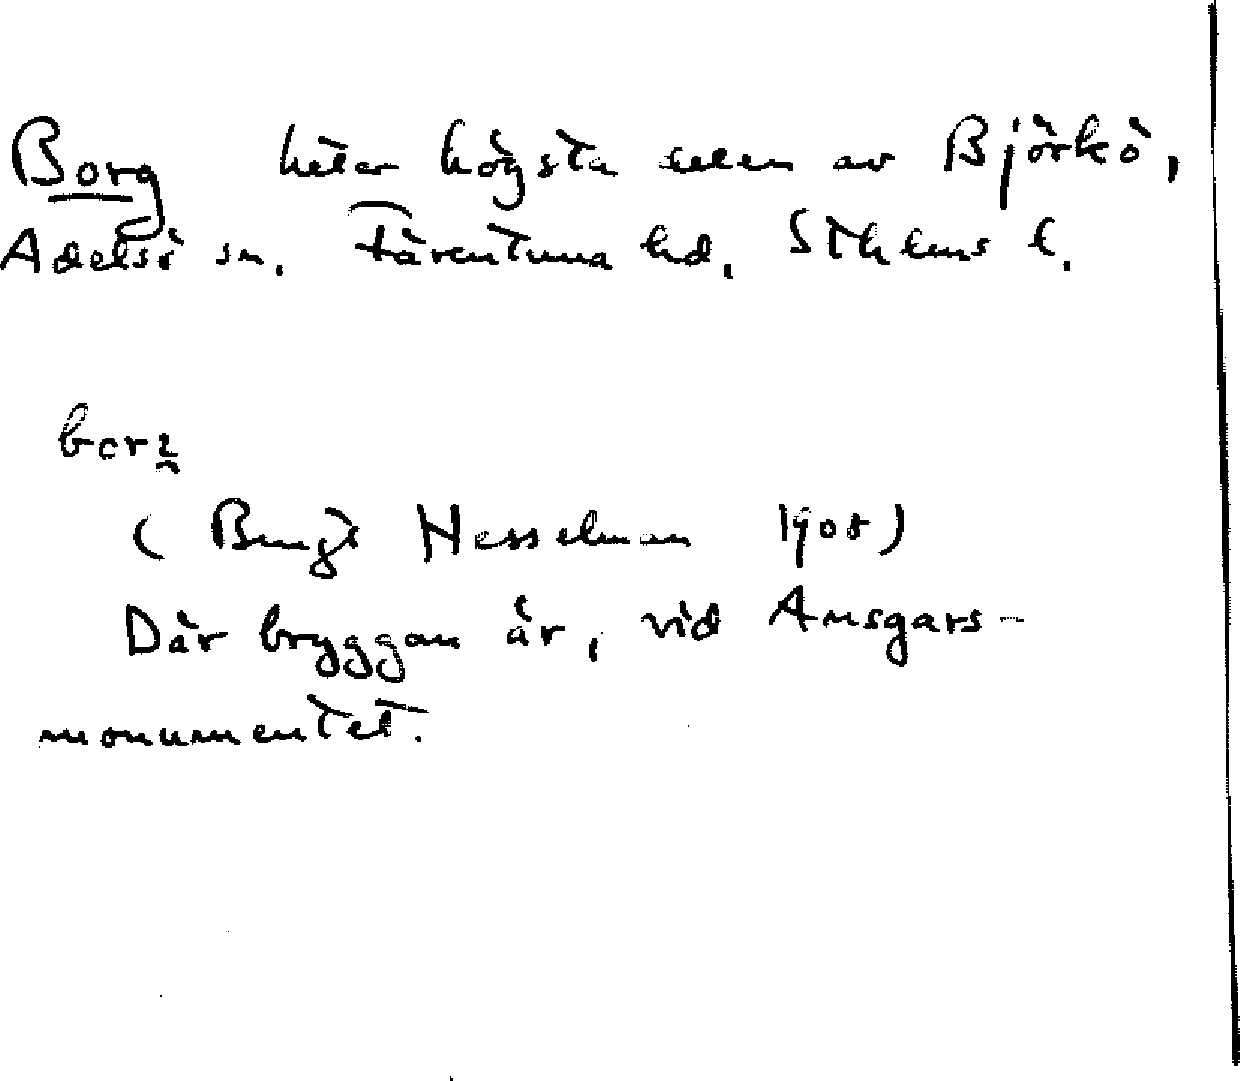 Borg heter högsta delen av Björkö,
Adelsö sn. Färentuna hd, Sthlms l.
(Bengt Hesselman 1908)
Där bryggan är, vid Ansgars-
monumentet.